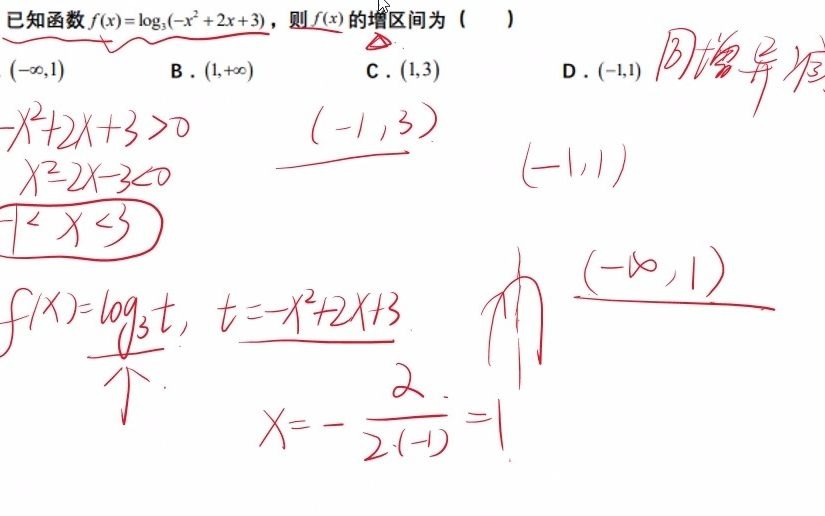 已知函数 f(x)=log₃(−x²+2x+3)，则 f(x) 的增区间为（　　）
. (−∞,1)　B．(1,+∞)　C．(1,3)　D．(−1,1)
同增异减
−x²+2x+3>0
(−1,3)
x²−2x−3<0
(−1,1)
−1<x<3
(−∞,1)
f(x)=log₃t, t=−x²+2x+3
↑
x=−2/(2·(−1))=1